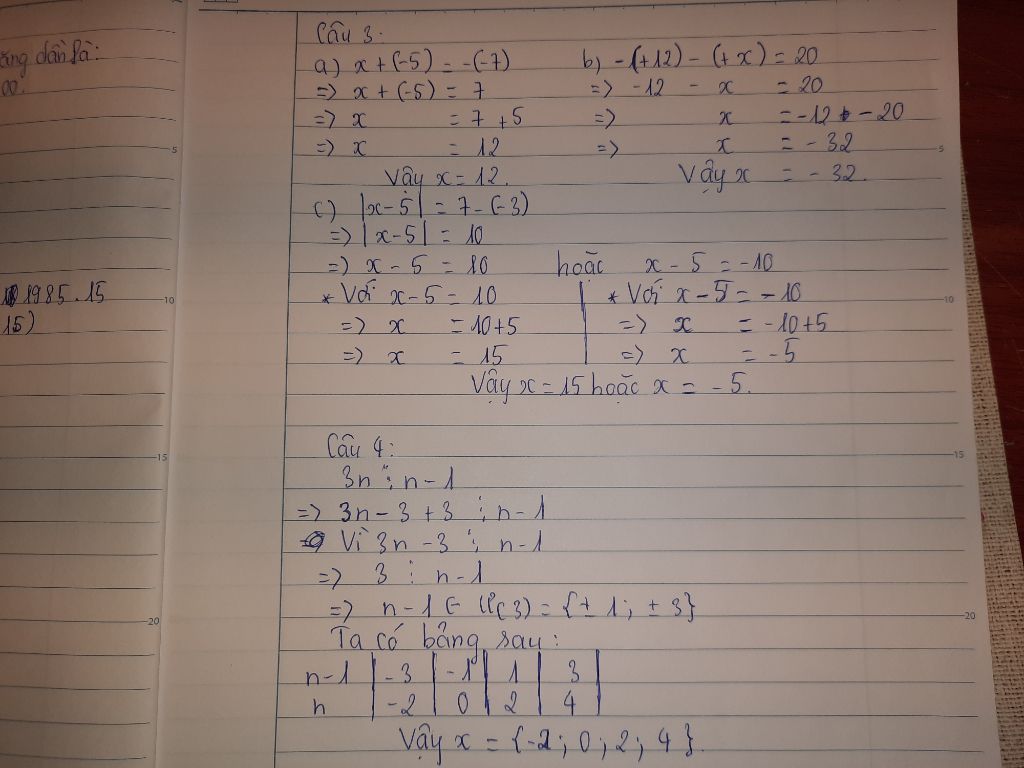 ăng dần là:
00.
1985.15
15)
Câu 3:
a) x + (-5) = -(-7)
=> x + (-5) = 7
=> x = 7 + 5
=> x = 12
Vậy x = 12.
b) -(+12) - (+x) = 20
=> -12 - x = 20
=> x = -12 - 20
=> x = -32
Vậy x = -32.
c) |x-5| = 7-(-3)
=> |x-5| = 10
=> x - 5 = 10 hoặc x - 5 = -10
* Với x-5 = 10
=> x = 10+5
=> x = 15
* Với x-5 = -10
=> x = -10+5
=> x = -5
Vậy x = 15 hoặc x = -5.
Câu 4:
3n ⋮ n-1
=> 3n - 3 + 3 ⋮ n-1
Vì 3n - 3 ⋮ n-1
=> 3 ⋮ n-1
=> n-1 ∈ Ư(3) = {±1; ±3}
Ta có bảng sau:
n-1 | -3 | -1 | 1 | 3
n | -2 | 0 | 2 | 4
Vậy x = {-2; 0; 2; 4}.
5
10
15
20
5
10
15
20